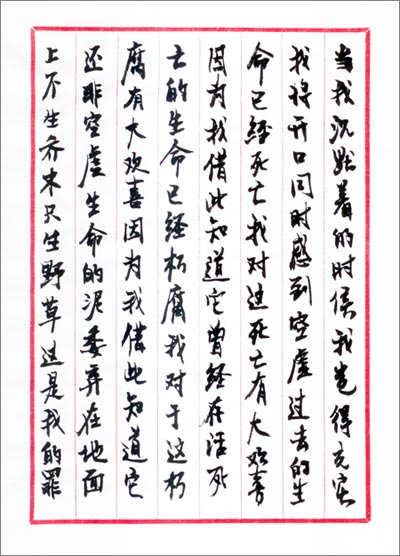 当我沉默着的时候我觉得充实
我将开口同时感到空虚过去的生
命已经死亡我对这死亡有大欢喜
因为我借此知道它曾经存活死
亡的生命已经朽腐我对于这朽
腐有大欢喜因为我借此知道它
还非空虚生命的泥委弃在地面
上不生乔木只生野草这是我的罪